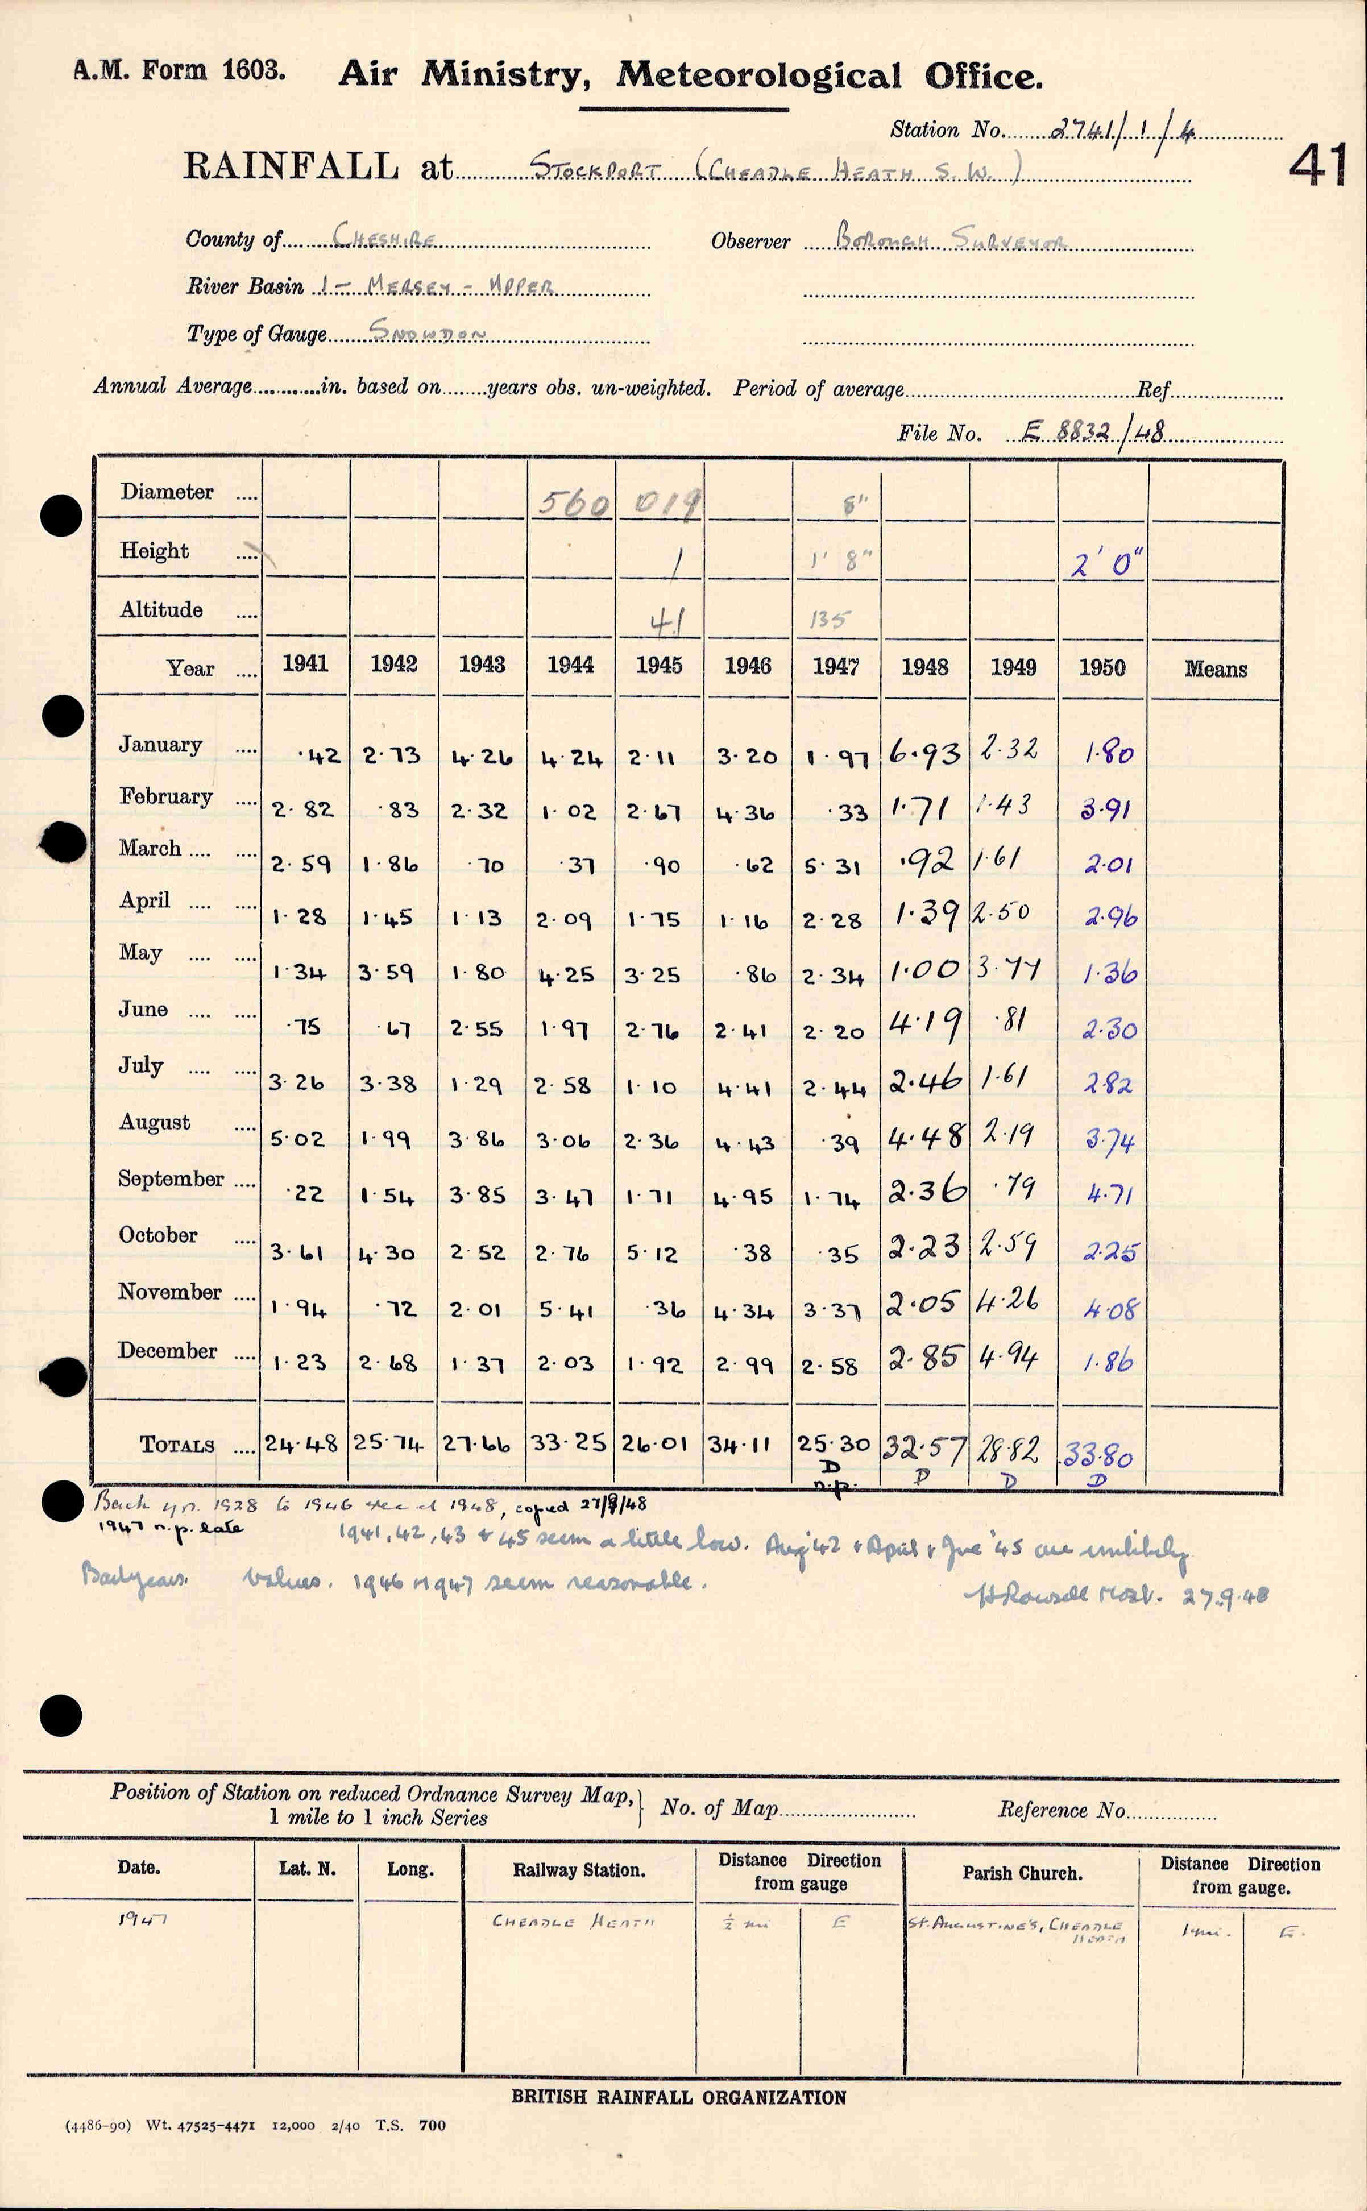 A.M. Form 1603. Air Ministry, Meteorological Office.
Station No. 2741/1/4
41
RAINFALL at STOCKPORT (CHEADLE HEATH S.W.)
County of CHESHIRE Observer BOROUGH SURVEYOR
River Basin 1 - MERSEY - UPPER
Type of Gauge SNOWDON
Annual Average in. based on years obs. un-weighted. Period of average Ref
File No. E 8832/48
Diameter 560 019 8"
Height 1 1' 8" 2' 0"
Altitude 41 135
Year 1941 1942 1943 1944 1945 1946 1947 1948 1949 1950 Means
January ·42 2·73 4·26 4·24 2·11 3·20 1·97 6·93 2·32 1·80
February 2·82 ·83 2·32 1·02 2·67 4·36 ·33 1·71 1·43 3·91
March 2·59 1·86 ·70 ·37 ·90 ·62 5·31 ·92 1·61 2·01
April 1·28 1·45 1·13 2·09 1·75 1·16 2·28 1·39 2·50 2·96
May 1·34 3·59 1·80 4·25 3·25 ·86 2·34 1·00 3·77 1·36
June ·75 ·67 2·55 1·97 2·76 2·41 2·20 4·19 ·81 2·30
July 3·26 3·38 1·29 2·58 1·10 4·41 2·44 2·46 1·61 2·82
August 5·02 1·99 3·86 3·06 2·36 4·43 ·39 4·48 2·19 3·74
September ·22 1·54 3·85 3·47 1·71 4·95 1·74 2·36 ·79 4·71
October 3·61 4·30 2·52 2·76 5·12 ·38 ·35 2·23 2·59 2·25
November 1·94 ·72 2·01 5·41 ·36 4·34 3·37 2·05 4·26 4·08
December 1·23 2·68 1·37 2·03 1·92 2·99 2·58 2·85 4·94 1·86
TOTALS 24·48 25·74 27·66 33·25 26·01 34·11 25·30 32·57 28·82 33·80
D D D D
n.p.
Back yrs. 1928 to 1946 1948, copied 27/9/48
1947 n.p. late
1941, 42, 43 & 45 seem a little low. Aug '42 & April & June '45 are unlikely
Back years. values. 1946 & 1947 seem reasonable. 27.9.48
Position of Station on reduced Ordnance Survey Map, 1 mile to 1 inch Series No. of Map Reference No.
Date. Lat. N. Long. Railway Station. Distance Direction from gauge Parish Church. Distance Direction from gauge.
1947 CHEADLE HEATH ½ mi E St. AUGUSTINE'S, CHEADLE HEATH 1 mi. E.
BRITISH RAINFALL ORGANIZATION
(4486-90) Wt. 47525-4471 12,000 2/40 T.S. 700